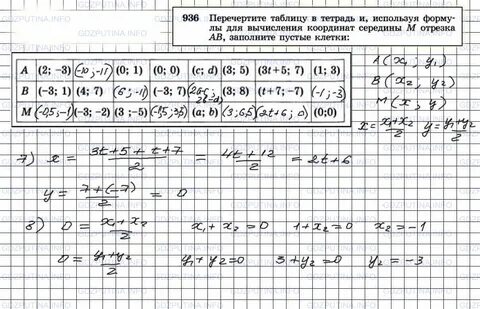 936 Перечертите таблицу в тетрадь и, используя форму-
лы для вычисления координат середины M отрезка
AB, заполните пустые клетки:
A (2; −3) (−10; −11) (0; 1) (0; 0) (c; d) (3; 5) (3t+5; 7) (1; 3)
B (−3; 1) (4; 7) (6; −11) (−3; 7) (3; 8) (t+7; −7) (−1; −3)
M (−0,5; −1) (−3; −2) (3; −5) (−1,5; 3,5) (a; b) (3; 6,5) (2t+6; 0) (0;0)
A (x₁; y₁)
B (x₂, y₂)
M (x; y)
x = x₁+x₂/2 y = y₁+y₂/2
7) x = 3t+5+t+7/2 = 4t+12/2 = 2t+6
y = 7+(−7)/2 = 0
8) 0 = x₁+x₂/2 x₁+x₂=0 1+x₂=0 x₂=−1
0 = y₁+y₂/2 y₁+y₂=0 3+y₂=0 y₂=−3
GDZPUTINA.INFO